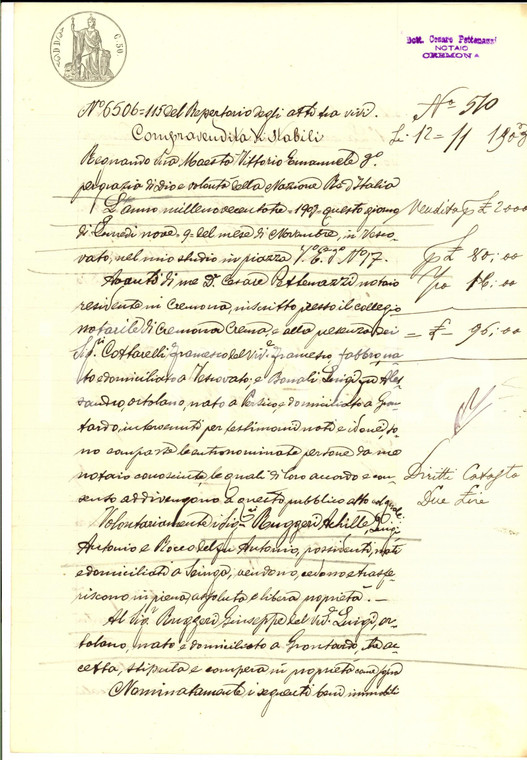 C. 50
Dott. Cesare Pettenazzi
NOTAIO
CREMONA
N.º 6506=115 del Repertorio degli atti tra vivi.
Compravendita di Stabili
Regnando Sua Maestà Vittorio Emanuele 3º
per grazia di dio e volontà della Nazione Re d'Italia
L'anno millenovecentotre = 1903 = questo giorno
di Lunedì nove = 9 = del mese di Novembre, in Vesco=
vato, nel mio studio in piazza V.º E.º Nº 17.
Avanti di me D.r Cesare Pettenazzi notaio
residente in Cremona, inscritto presso il collegio
notarile di Cremona Crema, e alla presenza dei
Sig.ri Cottarelli Francesco del viv.º Francesco, fabbro, na=
to e domiciliato a Vescovato, e Bonali Luigi fu Ales=
sandro, ortolano, nato a Persico e domiciliato a Gron=
tardo, intervenuti per testimoni noti e idonei so=
no comparse le sottonominate persone da me
notaio conosciute, le quali di loro accordo e con=
senso addivengono a questo pubblico atto col quale
Volontariamente i Sig.ri Ruggeri Achille, Luigi
Antonio e Rocco del fu Antonio, possidenti, nati
e domiciliati a vendono, cedono e trasfe=
riscono in piena, assoluta e libera proprietà. —
Al Sig.r Ruggeri Giuseppe del viv.º Luigi, or=
tolano, nato e domiciliato a Grontardo, che ac=
cetta, stipula e compera in proprietà come sopra
Nominatamente i seguenti beni immobili
Nº 510
Li 12 = 11 1903
Vendita £ 2000
£ 80,00
Ipo 16,00
= £ - 96,00
Diritti Catasto
Due Lire